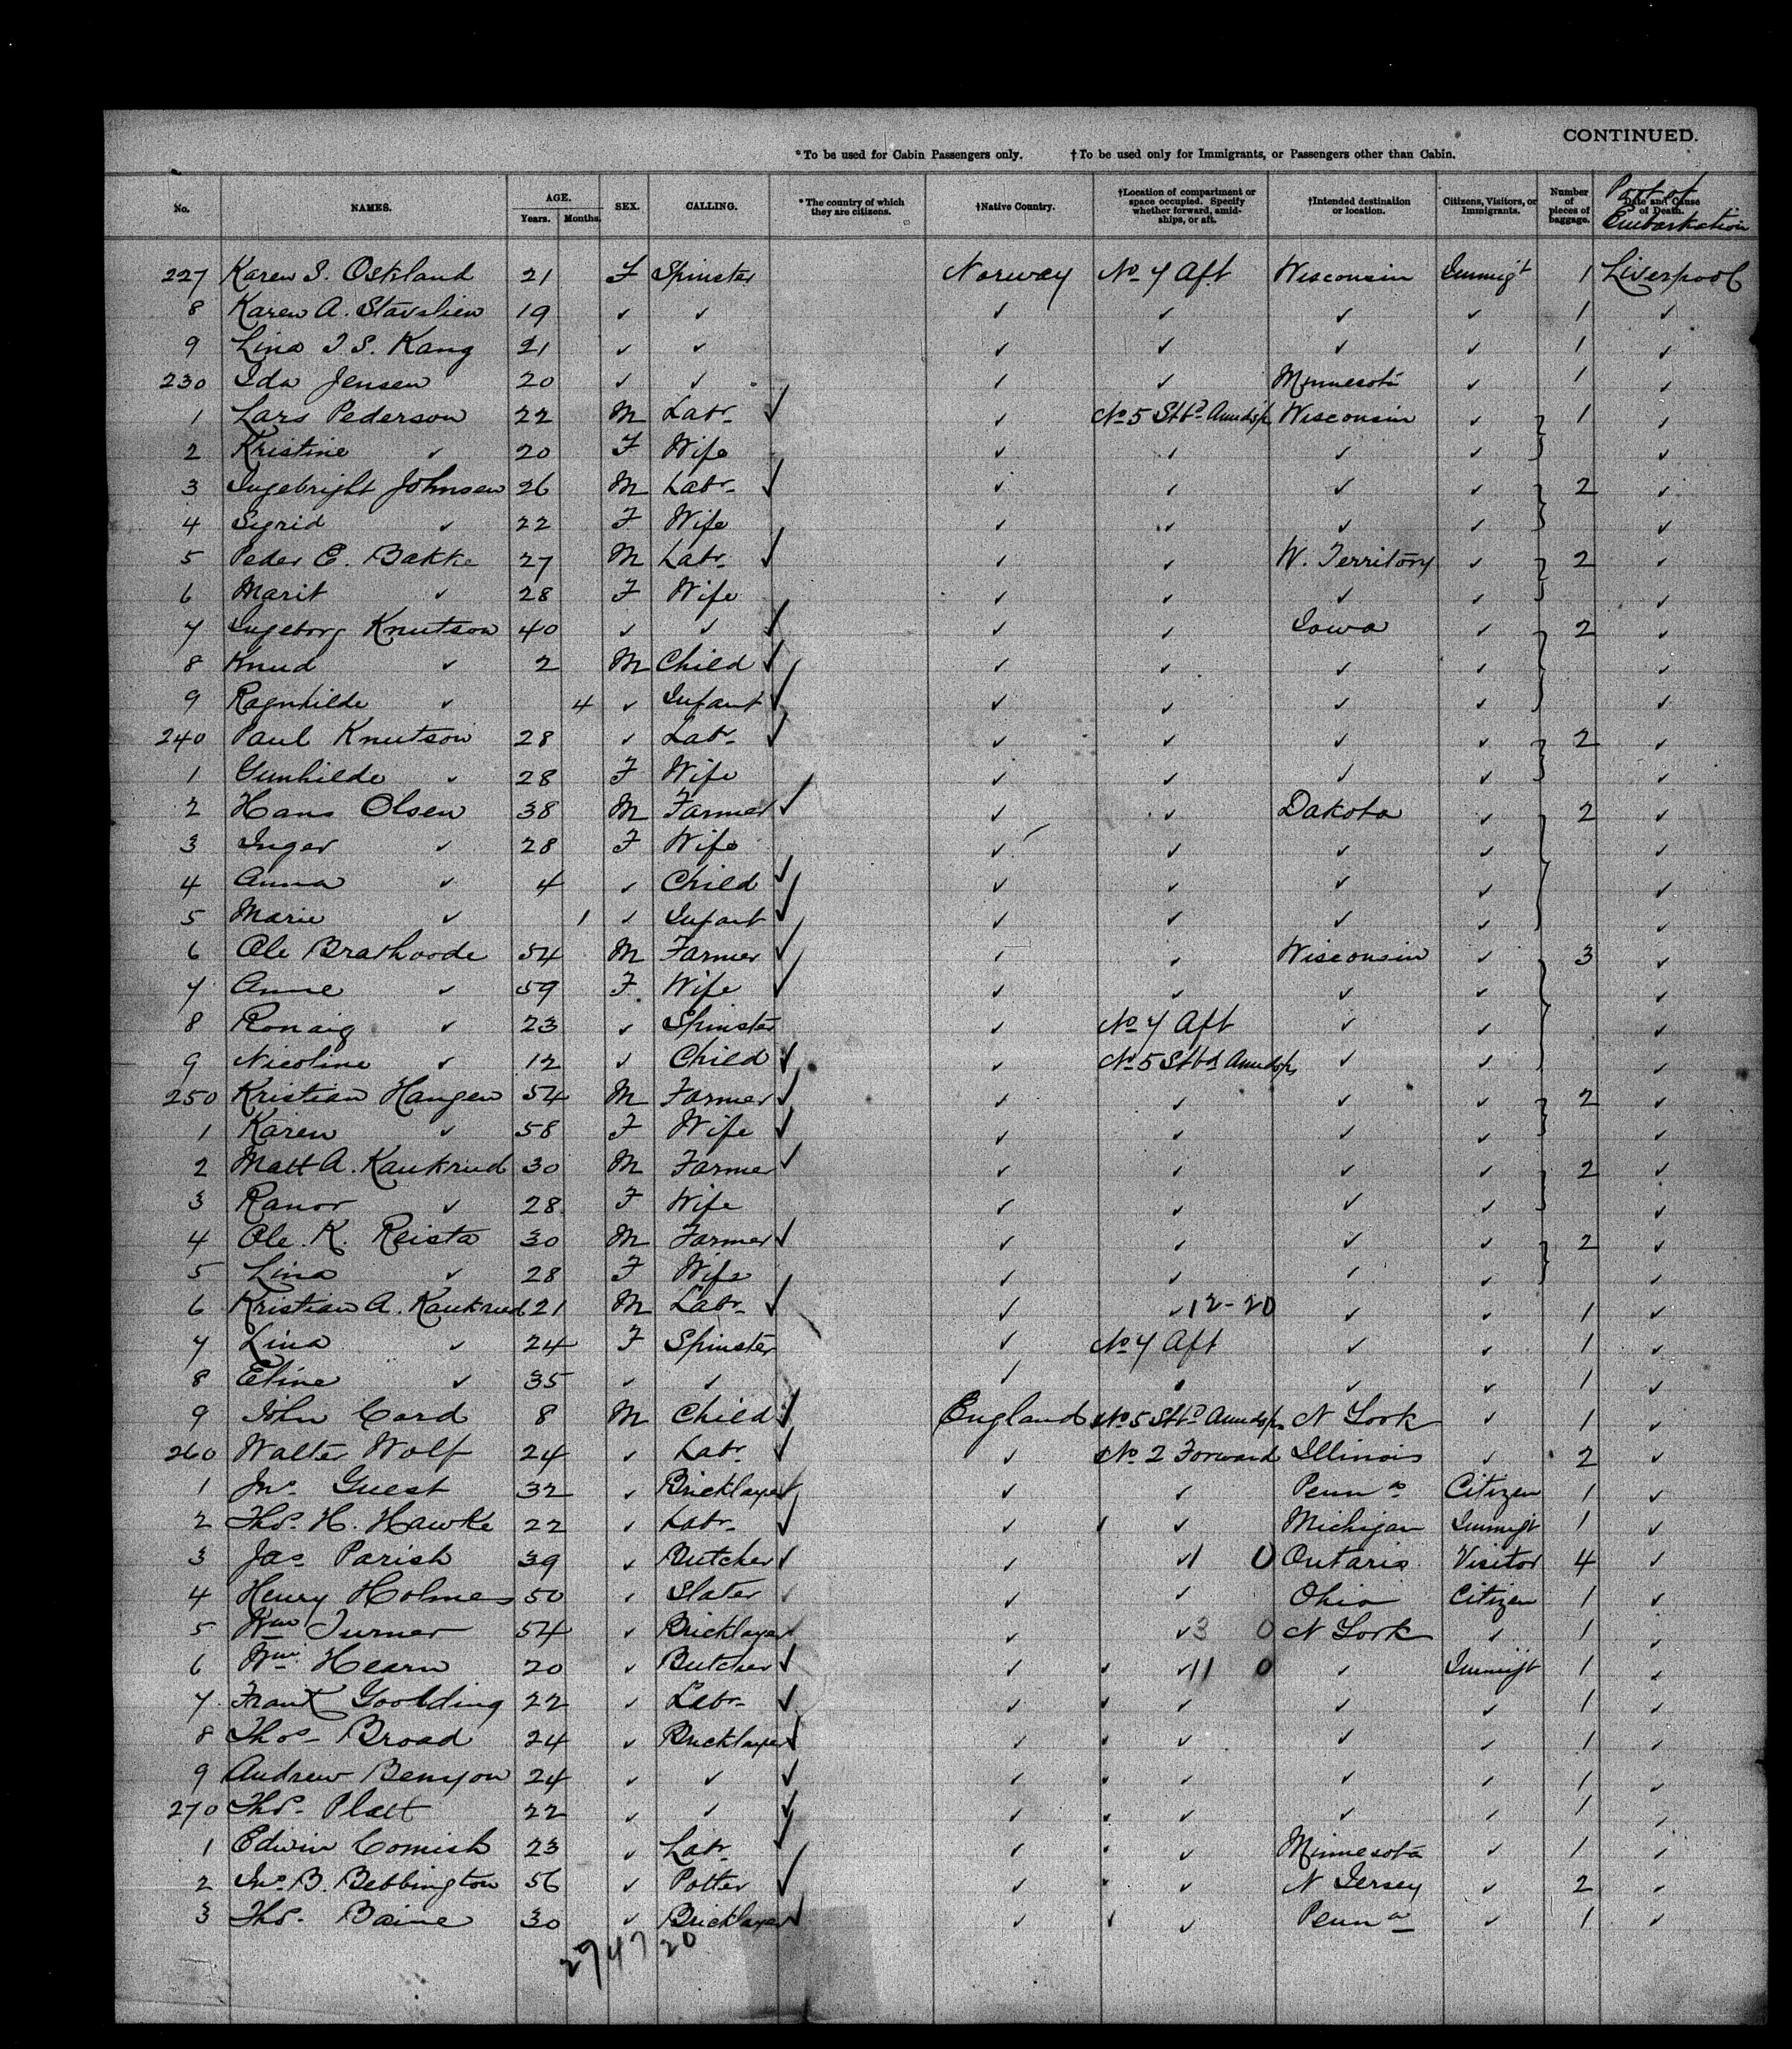 CONTINUED.
*To be used for Cabin Passengers only. †To be used only for Immigrants, or Passengers other than Cabin.
No. NAMES. AGE. Years. Months. SEX. CALLING. *The country of which they are citizens. †Native Country. †Location of compartment or space occupied. Specify whether forward, amidships, or aft. †Intended destination or location. Citizens, Visitors, or Immigrants. Number of pieces of baggage. Date and Cause of Death. Port of Embarkation
227 Karen S. Oskland 21 F Spinster Norway No 7 Aft Wisconsin Immigt 1 Liverpool
8 Karen A. Stavslien 19 ✓ ✓ ✓ ✓ ✓ ✓ 1 ✓
9 Lina I S. Kang 21 ✓ ✓ ✓ ✓ ✓ ✓ 1 ✓
230 Ida Jensen 20 ✓ ✓ ✓ ✓ Minnesota ✓ 1 ✓
1 Lars Pederson 22 M Labr ✓ ✓ No 5 Stbd Amidsps Wisconsin ✓ 1 ✓
2 Kristine ✓ 20 F Wife ✓ ✓ ✓ ✓ ✓
3 Ingebright Johnsen 26 M Labr ✓ ✓ ✓ ✓ ✓ 2 ✓
4 Sigrid ✓ 22 F Wife ✓ ✓ ✓ ✓ ✓
5 Peder E. Bakke 27 M Labr ✓ ✓ ✓ W. Territory ✓ 2 ✓
6 Marit ✓ 28 F Wife ✓ ✓ ✓ ✓ ✓
7 Ingeborg Knutson 40 ✓ ✓ ✓ ✓ ✓ Iowa ✓ 2 ✓
8 Knud ✓ 2 M Child ✓ ✓ ✓ ✓ ✓ ✓
9 Ragnhilde ✓ 4 ✓ Infant ✓ ✓ ✓ ✓ ✓ ✓
240 Paul Knutson 28 ✓ Labr ✓ ✓ ✓ ✓ ✓ 2 ✓
1 Gunhilde ✓ 28 F Wife ✓ ✓ ✓ ✓ ✓
2 Hans Olsen 38 M Farmer ✓ ✓ ✓ Dakota ✓ 2 ✓
3 Inger ✓ 28 F Wife ✓ ✓ ✓ ✓ ✓
4 Anna ✓ 4 ✓ Child ✓ ✓ ✓ ✓ ✓ ✓
5 Marie ✓ 1 ✓ Infant ✓ ✓ ✓ ✓ ✓ ✓
6 Ole Brathoode 54 M Farmer ✓ ✓ ✓ Wisconsin ✓ 3 ✓
7 Anne ✓ 59 F Wife ✓ ✓ ✓ ✓ ✓ ✓
8 Ronaig ✓ 23 ✓ Spinster ✓ No 7 Aft ✓ ✓ ✓
9 Nicoline ✓ 12 ✓ Child ✓ ✓ No 5 Stbd Amidsps ✓ ✓ ✓
250 Kristian Haugen 54 M Farmer ✓ ✓ ✓ ✓ ✓ 2 ✓
1 Karen ✓ 58 F Wife ✓ ✓ ✓ ✓ ✓ ✓
2 Matt A. Kaukrud 30 M Farmer ✓ ✓ ✓ ✓ ✓ 2 ✓
3 Ranor ✓ 28 F Wife ✓ ✓ ✓ ✓ ✓
4 Ole. K. Reista 30 M Farmer ✓ ✓ ✓ ✓ ✓ 2 ✓
5 Lina ✓ 28 F Wife ✓ ✓ ✓ ✓ ✓
6 Kristian A. Kaukrud 21 M Labr ✓ ✓ ✓ 12-20 ✓ ✓ 1 ✓
7 Lina ✓ 24 F Spinster ✓ No 7 Aft ✓ ✓ 1 ✓
8 Eline ✓ 35 ✓ ✓ ✓ ✓ ✓ ✓ 1 ✓
9 John Card 8 M Child ✓ England No 5 Stbd Amidsps N York ✓ 1 ✓
260 Walter Wolf 24 ✓ Labr ✓ ✓ No 2 Forward Illinois ✓ 2 ✓
1 Jno. Guest 32 ✓ Bricklayer ✓ ✓ ✓ Penna Citizen 1 ✓
2 Thos. H. Hawke 22 ✓ Labr ✓ ✓ ✓ Michigan Immigt 1 ✓
3 Jas Parish 39 ✓ Butcher ✓ ✓ ✓ 1 0 Ontario Visitor 4 ✓
4 Henry Holmes 50 ✓ Slater ✓ ✓ ✓ Ohio Citizen 1 ✓
5 Wm Turner 54 ✓ Bricklayer ✓ ✓ ✓ 3 0 N York ✓ 1 ✓
6 Wm Hearn 20 ✓ Butcher ✓ ✓ ✓ 11 0 ✓ Immigt 1 ✓
7 Frank Goolding 22 ✓ Labr ✓ ✓ ✓ ✓ ✓ 1 ✓
8 Thos Broad 24 ✓ Bricklayer ✓ ✓ ✓ ✓ ✓ 1 ✓
9 Andrew Benyon 24 ✓ ✓ ✓ ✓ ✓ ✓ ✓ 1 ✓
270 Thos. Platt 22 ✓ ✓ ✓ ✓ ✓ ✓ ✓ 1 ✓
1 Edwin Comish 23 ✓ Labr ✓ ✓ ✓ Minnesota ✓ 1 ✓
2 Jno. B. Bebbington 56 ✓ Potter ✓ ✓ ✓ N Jersey ✓ 2 ✓
3 Thos. Baine 30 ✓ Bricklayer ✓ ✓ ✓ Penna ✓ 1 ✓
2747 20